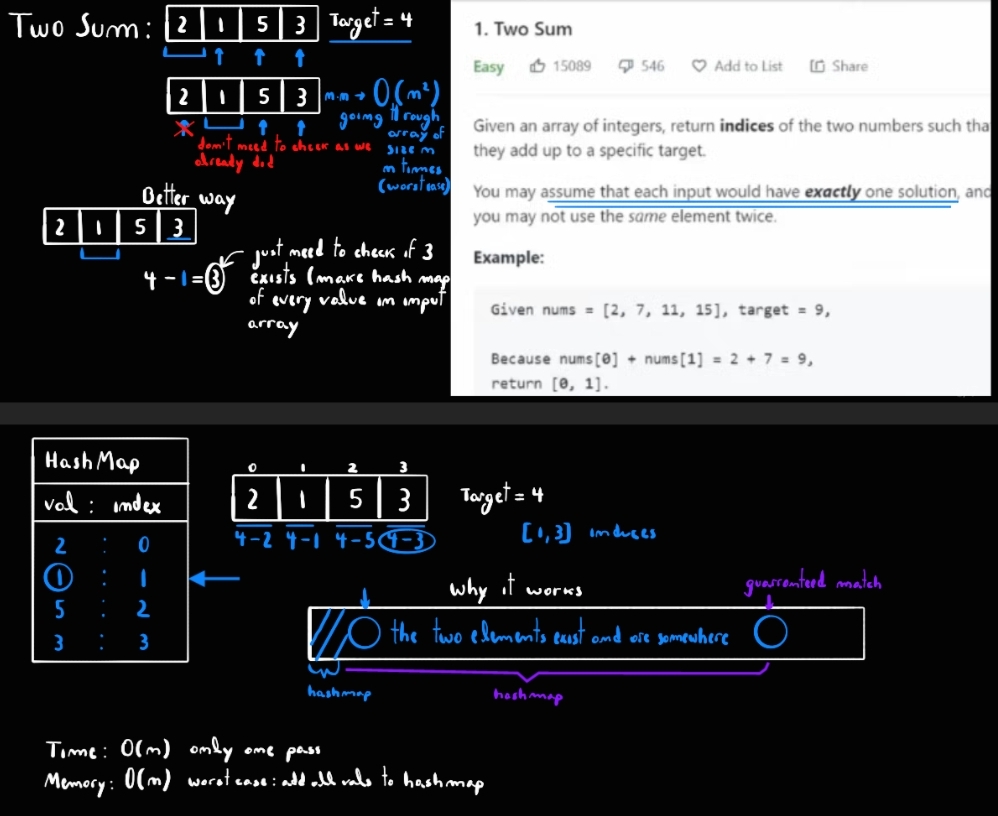 Two Sum: 2 1 5 3 Target = 4
2 1 5 3 n.n → O(n²)
going through
array of
size n
n times
(worst case)
don't need to check as we
already did
Better way
2 1 5 3
4 - 1 = 3
just need to check if 3
exists (make hash map
of every value in input
array
1. Two Sum
Easy 15089 546 Add to List Share
Given an array of integers, return indices of the two numbers such tha
they add up to a specific target.
You may assume that each input would have exactly one solution, and
you may not use the same element twice.
Example:
Given nums = [2, 7, 11, 15], target = 9,
Because nums[0] + nums[1] = 2 + 7 = 9,
return [0, 1].
HashMap
val : index
2 : 0
1 : 1
5 : 2
3 : 3
0 1 2 3
2 1 5 3
4-2 4-1 4-5 4-3
Target = 4
[1,3] indices
why it works
guarranteed match
the two elements exist and are somewhere
hashmap
hashmap
Time: O(n) only one pass
Memory: O(n) worst case: add all vals to hashmap